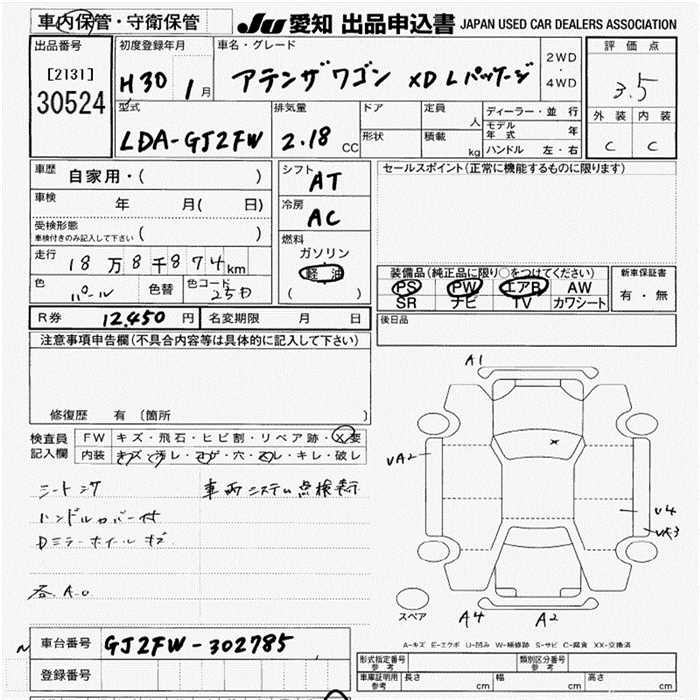 車内保管・守衛保管
JU 愛知 出品申込書 JAPAN USED CAR DEALERS ASSOCIATION
出品番号
[2131]
30524
初度登録年月
H30 1月
車名・グレード
アテンザワゴン XD Lパッケージ
2WD
4WD
評価点
3.5
外装 内装
C C
型式
LDA-GJ2FW
排気量
2.18 CC
ドア
形状
定員 人
積載 kg
ディーラー・並行
モデル年式 年
ハンドル 左・右
車歴
自家用・( )
車検
年 月( 日)
受検形態
車検付きのみ記入して下さい ( )
走行
18万8千874km
色
パール
色替
色コード
25D
シフト
AT
冷房
AC
燃料
ガソリン
軽油
( )
セールスポイント(正常に機能するものに限ります)
装備品(純正品に限り○をつけてください)
PS PW エアB AW
SR ナビ TV カワシート
新車保証書
有・無
R券 12,450 円
名変期限 月 日
後日品
注意事項申告欄(不具合内容等は具体的に記入して下さい)
修復歴 有 (箇所 )
検査員
記入欄
FW キズ・飛石・ヒビ割・リペア跡・X要
内装 キズ・汚レ・コゲ・穴・スレ・キレ・破レ
車両システム点検表示
ハンドルカバー付
Dミラーホイールキズ
各A.0
A1
UA2
U4
UA3
A4
A2
スペア
A-キズ E-エクボ U-凹み W-補修跡 S-サビ C-腐食 XX-交換済
車台番号
GJ2FW-302785
登録番号
形式指定番号
参考
類別区分番号
参考
車庫証明用
参考
長さ cm
幅 cm
高さ cm